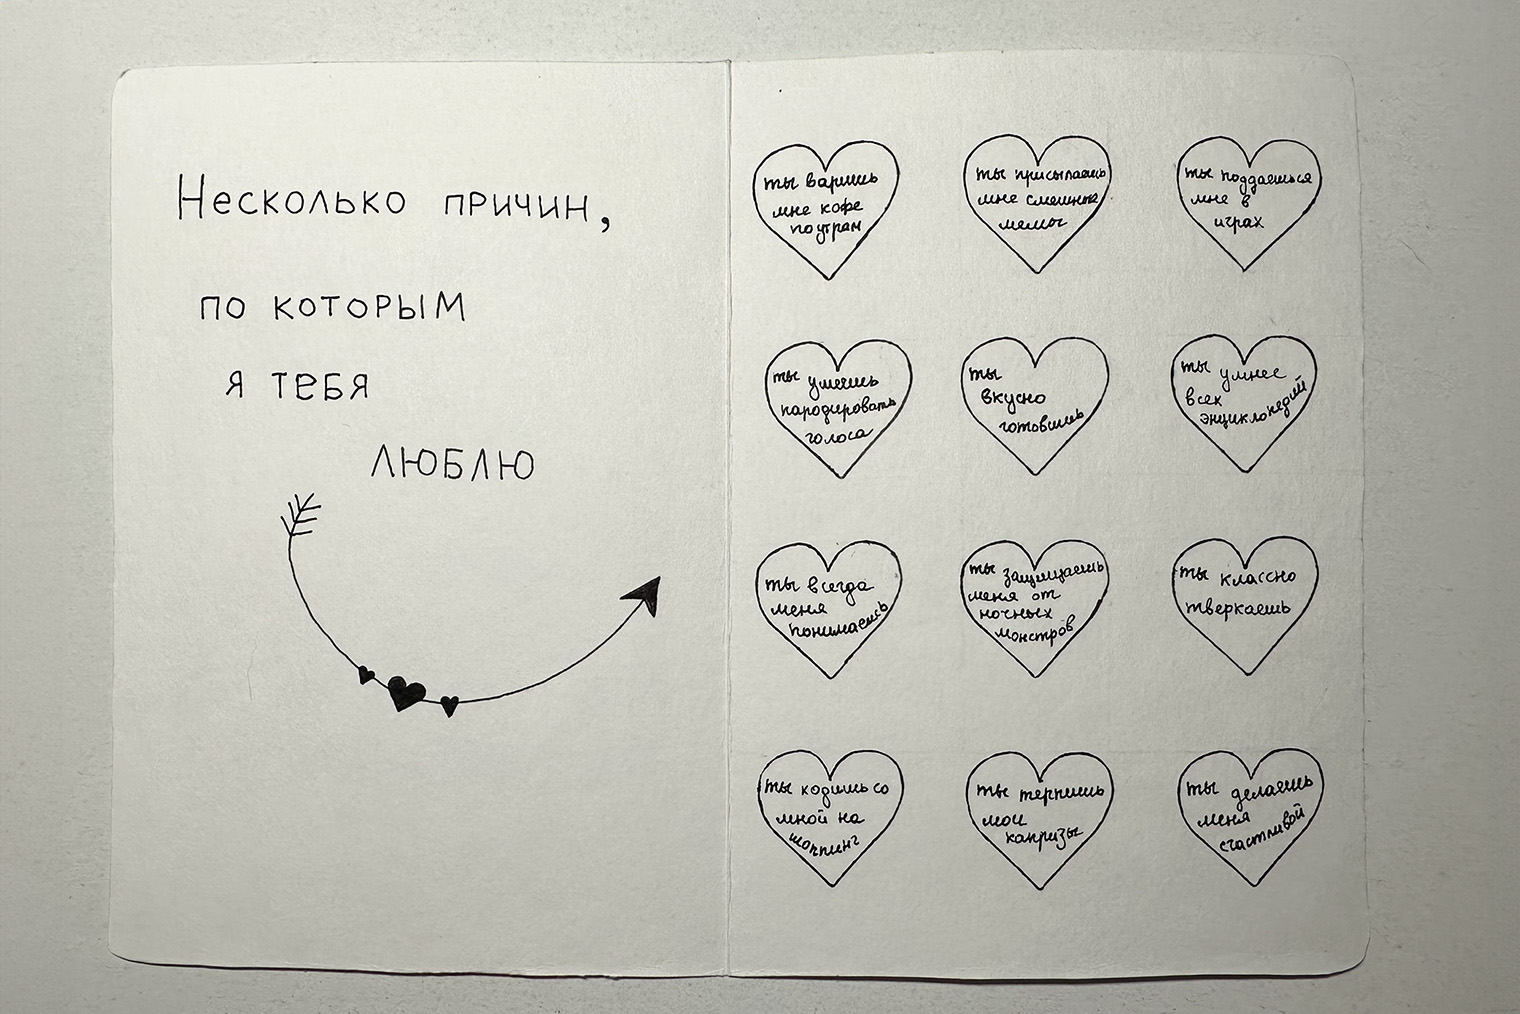 Несколько причин,
по которым
я тебя
люблю
ты варишь
мне кофе
по утрам
ты присылаешь
мне смешные
мемы
ты поддаешься
мне в
играх
ты умеешь
пародировать
голоса
ты
вкусно
готовишь
ты умнее
всех
энциклопедий
ты всегда
меня
понимаешь
ты защищаешь
меня от
ночных
монстров
ты классно
тверкаешь
ты ходишь со
мной на
шоппинг
ты терпишь
мои
капризы
ты делаешь
меня
счастливой